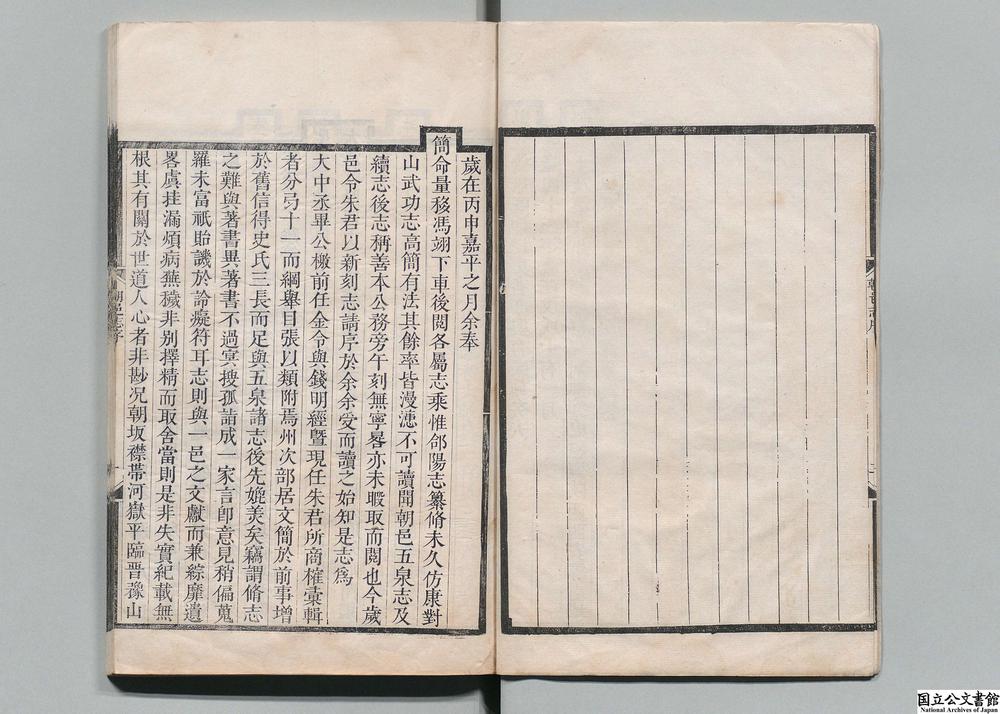 朝邑志序
二
歲在丙申嘉平之月余奉
簡命量移馮翊下車後閱各屬志乘惟郃陽志纂脩未久仿康對
山武功志高簡有法其餘率皆漫漶不可讀聞朝邑五泉志及
續志後志稱善本公務旁午刻無寧晷亦未暇取而閱也今歲
邑令朱君以新刻志請序於余余受而讀之始知是志爲
大中丞畢公檄前任金令與錢明經暨現任朱君所商榷彙輯
者分为十一而綱舉目張以類附焉州次部居文簡於前事增
於舊信得史氏三長而足與五泉諸志後先媲美矣竊謂脩志
之難與著書異著書不過冥搜孤詣成一家言卽意見稍偏蒐
羅未富祇貽譏於詅癡符耳志則與一邑之文獻而兼綜靡遺
畧虞挂漏煩病蕪穢非别擇精而取舍當則是非失實紀載無
根其有關於世道人心者非尠况朝坂襟帶河嶽平臨晋豫山
朝邑志序
一
国立公文書館
National Archives of Japan